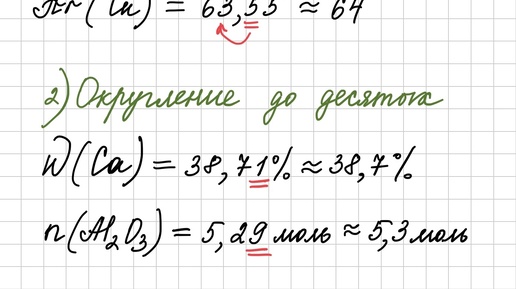 Ar(Cu) = 63,55 ≈ 64
2) Округление до десятых
W(Ca) = 38,71% ≈ 38,7%
n(Al₂O₃) = 5,29 моль ≈ 5,3 моль